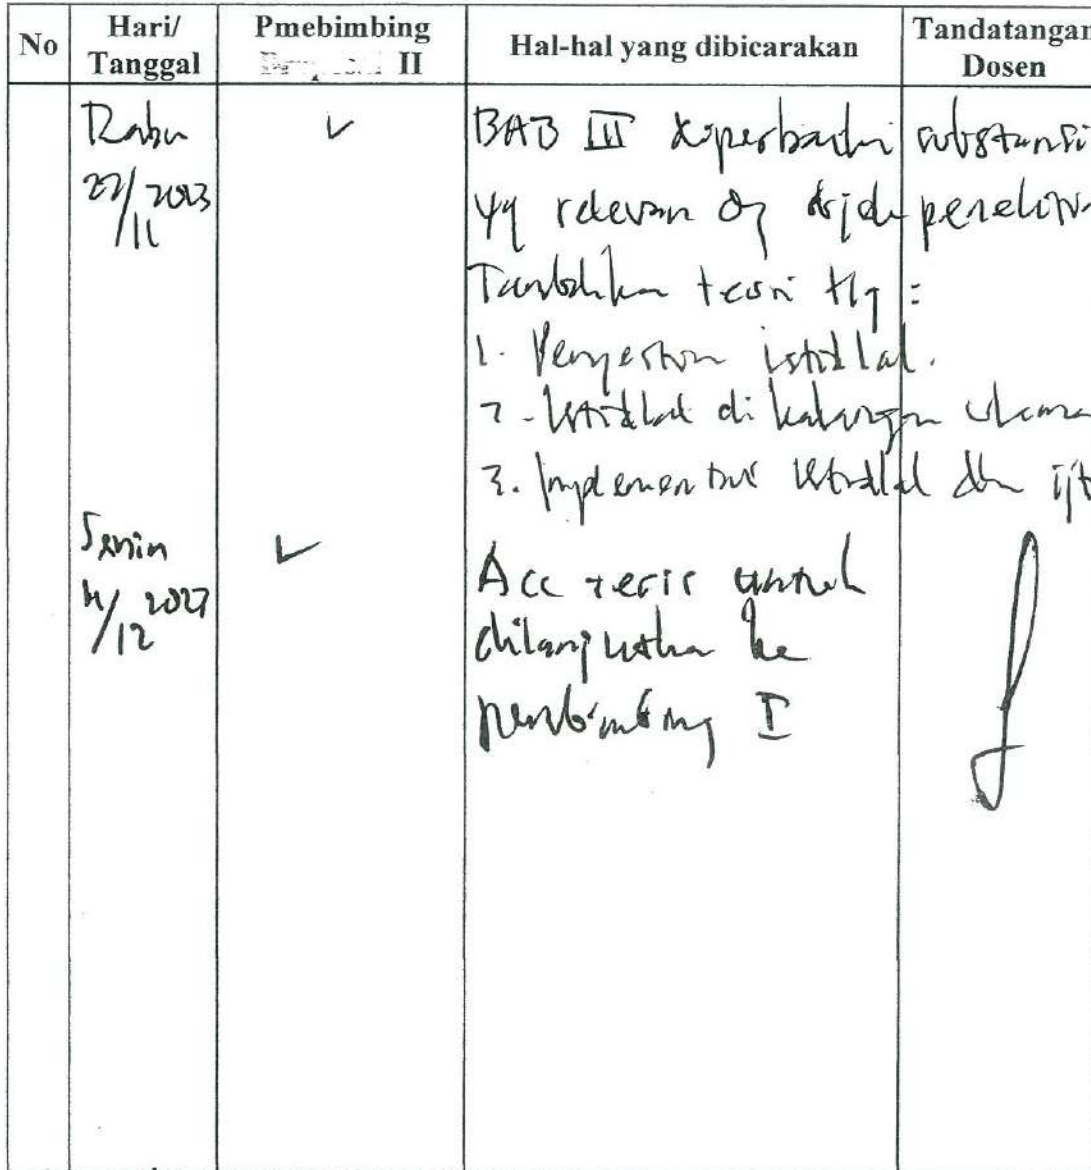 No
Hari/
Tanggal
Pmebimbing
II
Hal-hal yang dibicarakan
Tandatangan
Dosen
Rabu
22/11 2023
BAB III diperbaiki substansi
yg relevan dg penelitian
Tambahkan teori ttg :
1. Pengertian istidlal.
2. Istidlal di kalangan ulama
3. Implementasi istidlal dan ijt
Senin
4/12 2023
Acc tesis untuk
dilanjutkan ke
pembimbing I